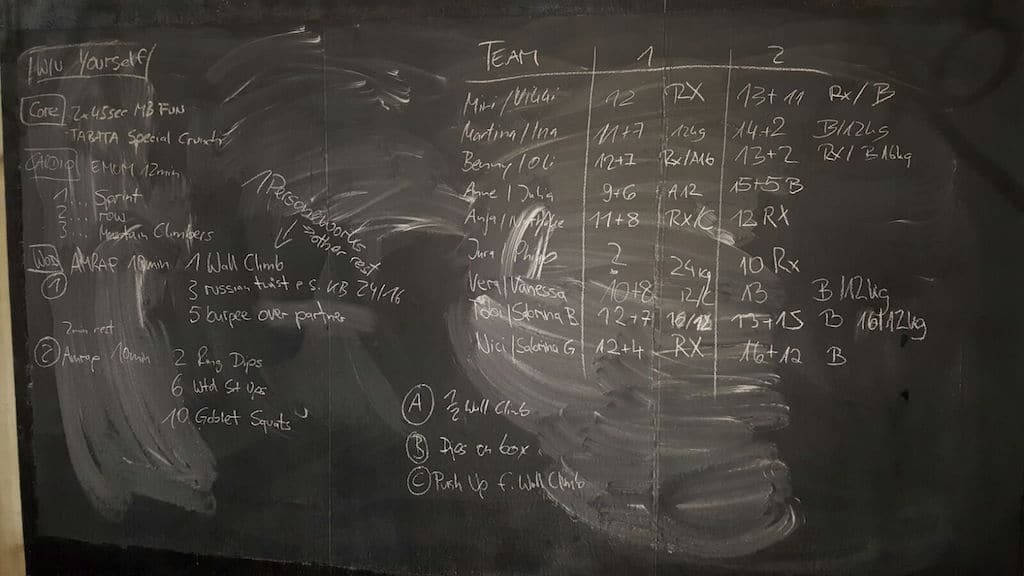 Yourself
Core 2x45sec MB FUN
TABATA Special Crunch
EMOM 12min
1... Sprint
2... row
3... Mountain Climbers
1 Person works
→ other rest
AMRAP 10min 1 Wall Climb
① 3 russian twist e.s. KB 24/16
5 burpee over partner
2min rest
② Amrap 10min 2 Ring Dips
6 Wtd St Ups
10 Goblet Squats
TEAM 1 2
12 RX 13+11 Rx/B
Martina/Ina 11+7 12kg 14+2 B/12kg
Benny/Oli 12+7 Rx/A16 13+2 RX/B16kg
Anne/Julia 9+6 A12 15+5 B
Anja/ 11+8 RX/C 12 RX
Jura/ ? 24kg 10 Rx
Vera/Vanessa 10+8 12/C 13 B 12kg
/Sabrina B 12+7 16/12 13+15 B 16+12kg
Nici/Sabrina G 12+4 RX 16+12 B
Ⓐ 1/2 Wall Climb
Ⓑ Dips on box
Ⓒ Push Up f. Wall Climb